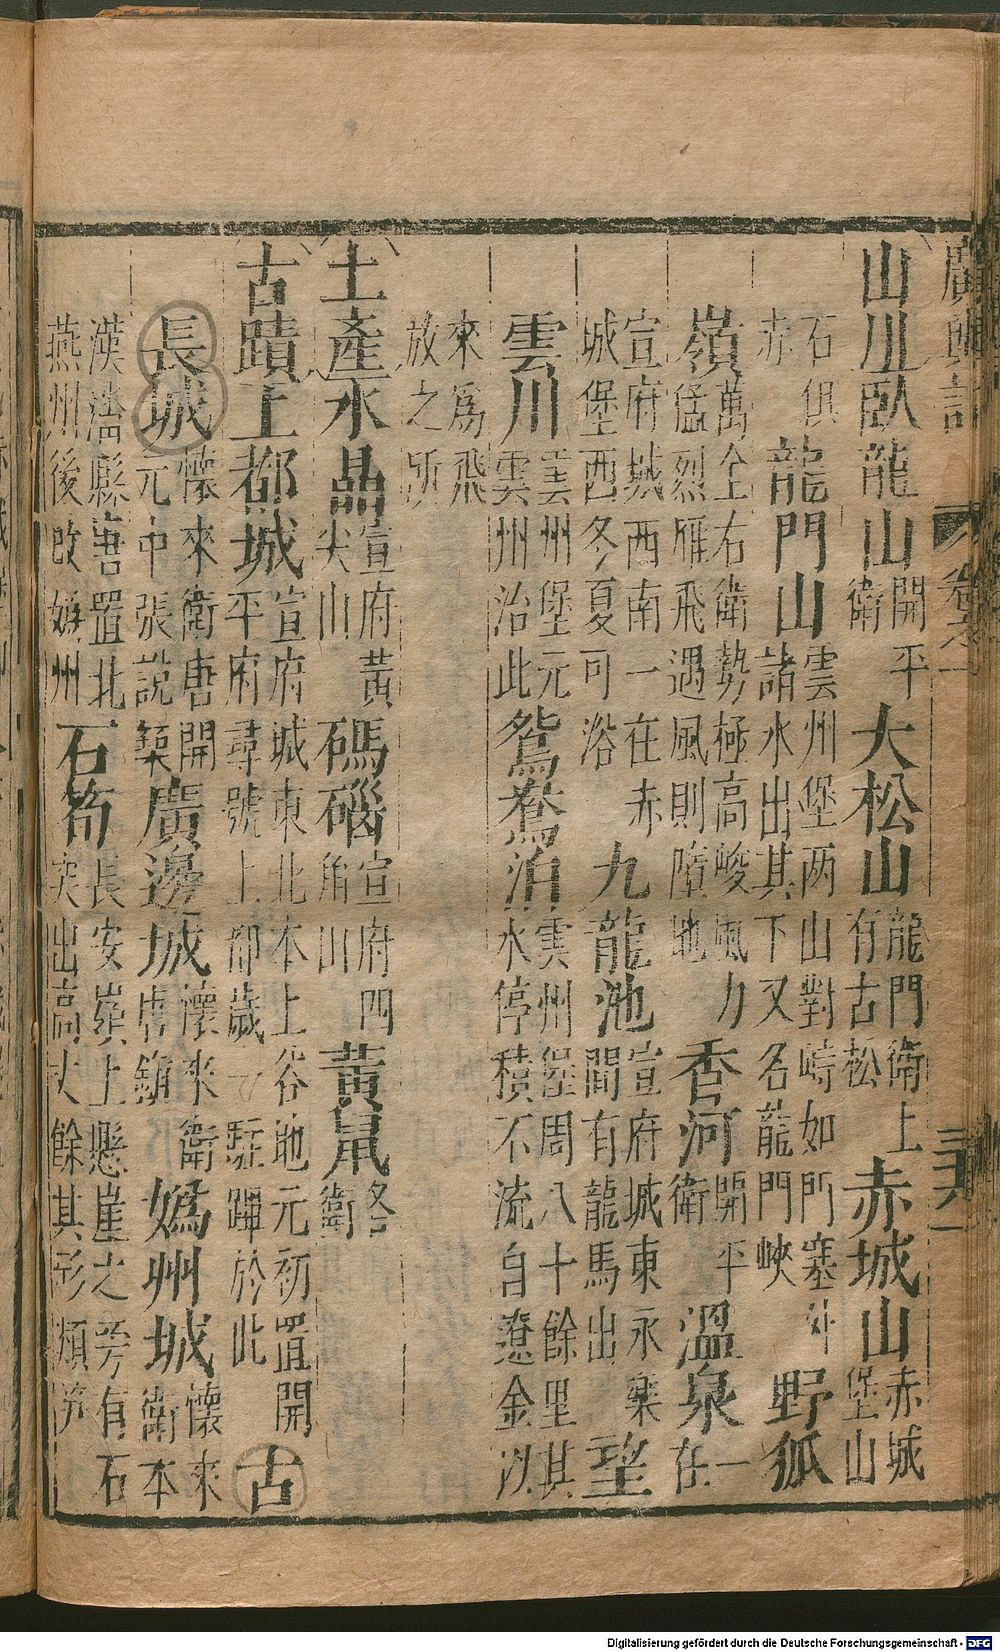 廣輿記 卷之一
山川臥龍山開平衛大松山龍門衛上有古松赤城山赤城堡山
石俱赤龍門山雲州堡两山對峙如門塞外諸水出其下又名龍門峽野狐
嶺萬全右衛勢極高峻風力猛烈雁飛遇風則墮地香河開平衛溫泉一在
宣府城西南一在赤城堡西冬夏可浴九龍池宣府城東永樂間有龍馬出望
雲川雲州堡元雲州治此鴛鴦泊雲州堡周八十餘里其水停積不流自遼金以
來爲飛放之所
土產水晶宣府黃尖山碼碯宣府四角山黃鼠各衛
古蹟上都城宣府城東北本上谷地元初置開平府尋號上都歲一駐蹕於此古
長城懷來衛唐開元中張說築廣邊城懷來衛唐鎮媯州城懷來衛本
漢潘縣唐置北燕州後改媯州石筍長安嶺上懸崖之旁有石突出高丈餘其形類笋
Digitalisierung gefördert durch die Deutsche Forschungsgemeinschaft - DFG